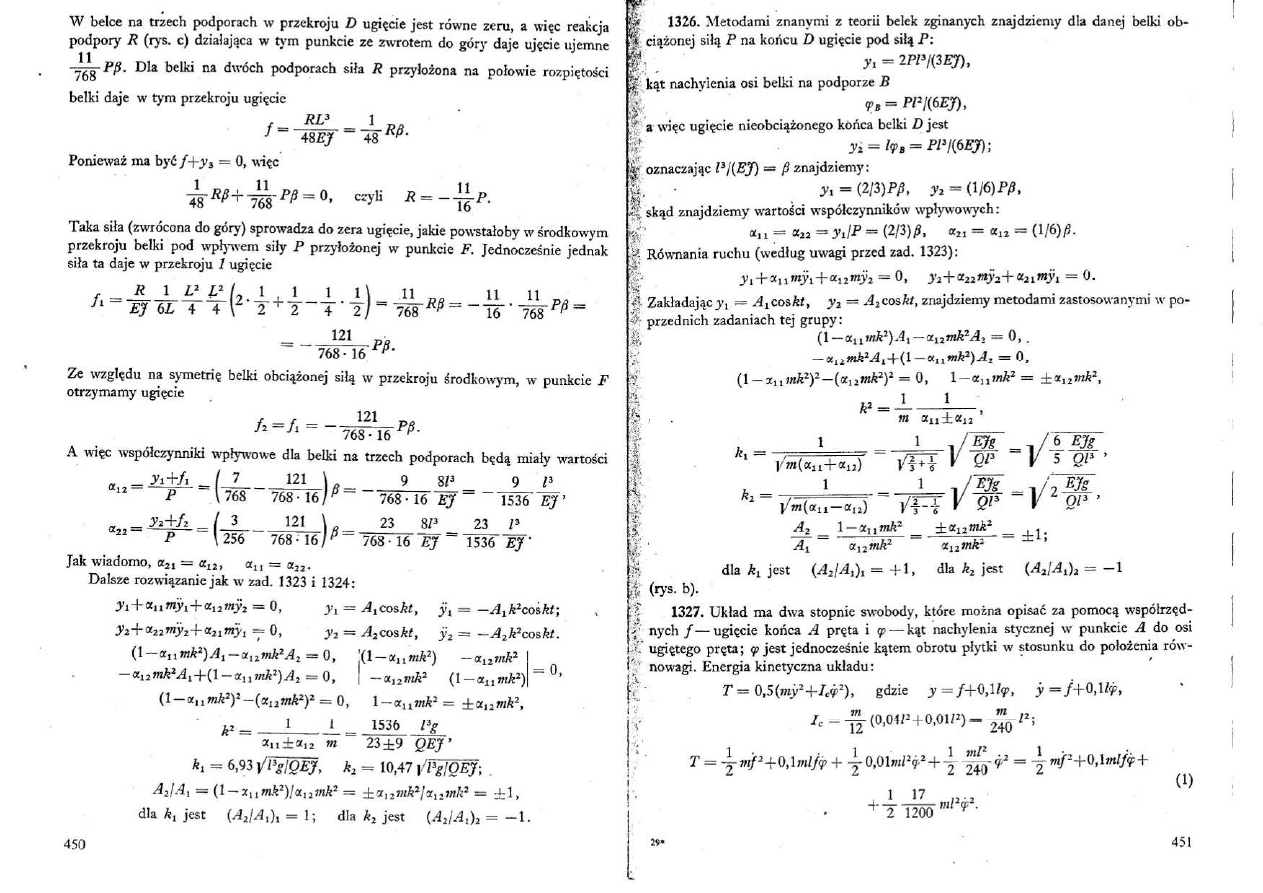 W belce na trzech podporach w przekroju D ugięcie jest równe zeru, a więc reakcja
podpory R (rys. c) działająca w tym punkcie ze zwrotem do góry daje ujęcie ujemne
11/768 Pβ. Dla belki na dwóch podporach siła R przyłożona na połowie rozpiętości
belki daje w tym przekroju ugięcie
f = RL³/48EJ = 1/48 Rβ.
Ponieważ ma być f+y₃ = 0, więc
1/48 Rβ + 11/768 Pβ = 0, czyli R = − 11/16 P.
Taka siła (zwrócona do góry) sprowadza do zera ugięcie, jakie powstałoby w środkowym
przekroju belki pod wpływem siły P przyłożonej w punkcie F. Jednocześnie jednak
siła ta daje w przekroju I ugięcie
f₁ = R/EJ 1/6L L²/4 L²/4 (2·1/2 + 1/2 − 1/4·1/2) = 11/768 Rβ = − 11/16 · 11/768 Pβ =
= − 121/768·16 Pβ.
Ze względu na symetrię belki obciążonej siłą w przekroju środkowym, w punkcie F
otrzymamy ugięcie
f₂ = f₁ = − 121/768·16 Pβ.
A więc współczynniki wpływowe dla belki na trzech podporach będą miały wartości
α₁₂ = y₁+f₁/P = (7/768 − 121/768·16) β = − 9/768·16 8l³/EJ = − 9/1536 l³/EJ,
α₂₂ = y₂+f₂/P = (3/256 − 121/768·16) β = 23/768·16 8l³/EJ = 23/1536 l³/EJ.
Jak wiadomo, α₂₁ = α₁₂, α₁₁ = α₂₂.
Dalsze rozwiązanie jak w zad. 1323 i 1324:
y₁+α₁₁mÿ₁+α₁₂mÿ₂ = 0, y₁ = A₁coskt, ÿ₁ = −A₁k²coskt;
y₂+α₂₂mÿ₂+α₂₁mÿ₁ = 0, y₂ = A₂coskt, ÿ₂ = −A₂k²coskt.
(1−α₁₁mk²)A₁−α₁₂mk²A₂ = 0, |(1−α₁₁mk²) −α₁₂mk²|
−α₁₂mk²A₁+(1−α₁₁mk²)A₂ = 0, |−α₁₂mk² (1−α₁₁mk²)| = 0,
(1−α₁₁mk²)²−(α₁₂mk²)² = 0, 1−α₁₁mk² = ±α₁₂mk²,
k² = 1/α₁₁±α₁₂ 1/m = 1536/23±9 l³g/QEJ,
k₁ = 6,93 √l³g/QEJ, k₂ = 10,47 √l³g/QEJ;
A₂/A₁ = (1−α₁₁mk²)/α₁₂mk² = ±α₁₂mk²/α₁₂mk² = ±1,
dla k₁ jest (A₂/A₁)₁ = 1; dla k₂ jest (A₂/A₁)₂ = −1.
450
1326. Metodami znanymi z teorii belek zginanych znajdziemy dla danej belki ob-
ciążonej siłą P na końcu D ugięcie pod siłą P:
y₁ = 2Pl³/(3EJ),
kąt nachylenia osi belki na podporze B
φ_B = Pl²/(6EJ),
a więc ugięcie nieobciążonego końca belki D jest
y₂ = lφ_B = Pl³/(6EJ);
oznaczając l³/(EJ) = β znajdziemy:
y₁ = (2/3)Pβ, y₂ = (1/6)Pβ,
skąd znajdziemy wartości współczynników wpływowych:
α₁₁ = α₂₂ = y₁/P = (2/3)β, α₂₁ = α₁₂ = (1/6)β.
Równania ruchu (według uwagi przed zad. 1323):
y₁+α₁₁mÿ₁+α₁₂mÿ₂ = 0, y₂+α₂₂mÿ₂+α₂₁mÿ₁ = 0.
Zakładając y₁ = A₁coskt, y₂ = A₂coskt, znajdziemy metodami zastosowanymi w po-
przednich zadaniach tej grupy:
(1−α₁₁mk²)A₁−α₁₂mk²A₂ = 0,
−α₁₂mk²A₁+(1−α₁₁mk²)A₂ = 0,
(1−α₁₁mk²)²−(α₁₂mk²)² = 0, 1−α₁₁mk² = ±α₁₂mk²,
k² = 1/m 1/α₁₁±α₁₂,
k₁ = 1/√m(α₁₁+α₁₂) = 1/√2/3+1/6 √EJg/Ql³ = √6/5 EJg/Ql³,
k₂ = 1/√m(α₁₁−α₁₂) = 1/√2/3−1/6 √EJg/Ql³ = √2 EJg/Ql³,
A₂/A₁ = 1−α₁₁mk²/α₁₂mk² = ±α₁₂mk²/α₁₂mk² = ±1;
dla k₁ jest (A₂/A₁)₁ = +1, dla k₂ jest (A₂/A₁)₂ = −1
(rys. b).
1327. Układ ma dwa stopnie swobody, które można opisać za pomocą współrzęd-
nych f — ugięcie końca A pręta i φ — kąt nachylenia stycznej w punkcie A do osi
ugiętego pręta; φ jest jednocześnie kątem obrotu płytki w stosunku do położenia rów-
nowagi. Energia kinetyczna układu:
T = 0,5(mẏ²+I_cφ̇²), gdzie y = f+0,1lφ, ẏ = ḟ+0,1lφ̇,
I_c = m/12 (0,04l²+0,01l²) = m/240 l²;
T = 1/2 mḟ²+0,1mlḟφ̇ + 1/2 0,01ml²φ̇² + 1/2 ml²/240 φ̇² = 1/2 mḟ²+0,1mlḟφ̇ +
+ 1/2 17/1200 ml²φ̇². (1)
29*
451